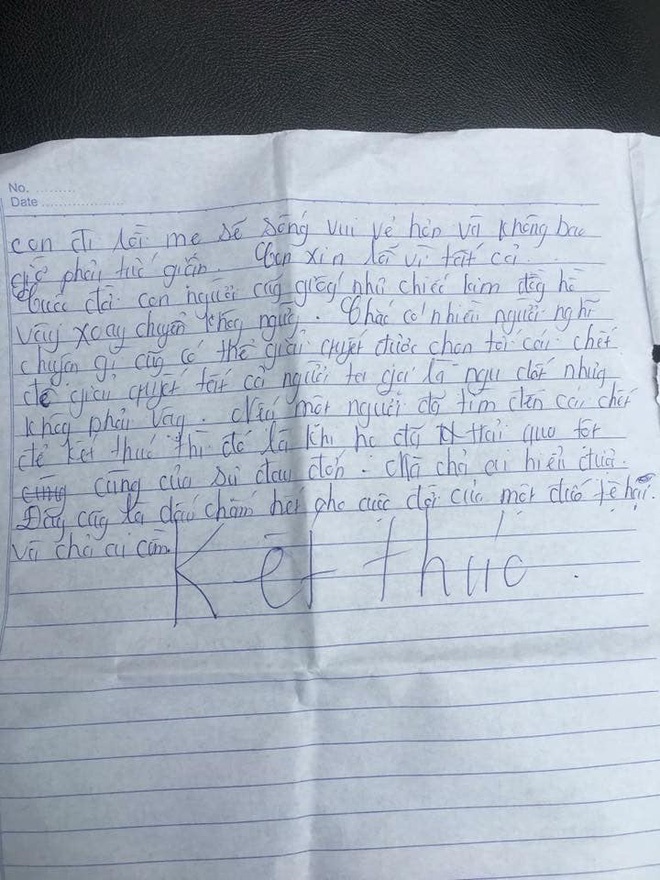 No.
Date
con đi rồi mẹ sẽ sống vui vẻ hơn và không bao
giờ phải tức giận. Con xin lỗi vì tất cả.
Cuộc đời con người cũg giốg như chiếc kim đồg hồ
vậy xoay chuyển khôg ngừg. Chắc có nhiều người nghĩ
chuyện gì cũg có thể giải quyết được chọn tới cái chết
để giải quyết tất cả người ta gọi là ngu dốt nhưg
khôg phải vậy. Nếu một người đã tìm đến cái chết
để kết thúc thì đó là khi họ đã trải qua tột
cùng của sự đau đớn. Mà chả ai hiểu được.
Đây cũg là dấu chấm hết cho cuộc đời của một đứa tệ hại.
và chả ai cần.
Kết thúc.